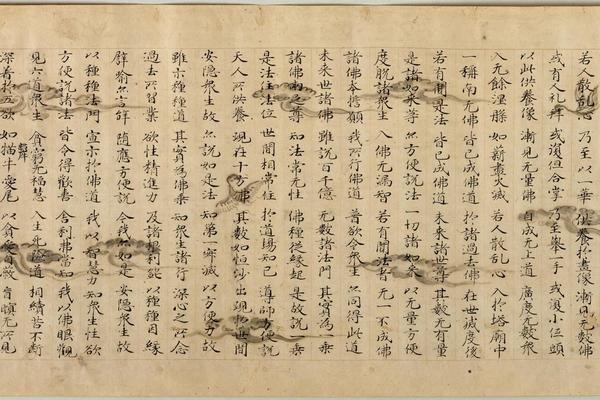 若人散乱心 乃至以一華 供養於畫像 漸見无數佛
或有人礼拜 或復但合掌 乃至舉一手 或復小低頭
以此供養像 漸見无量佛 自成无上道 廣度无數衆
入无餘涅槃 如薪盡火滅 若人散乱心 入於塔廟中
一稱南无佛 皆已成佛道 於諸過去佛 在世滅度後
若有聞是法 皆已成佛道 未來諸世尊 其數无有量
是諸如來等 亦方便說法 一切諸如來 以无量方便
度脫諸衆生 入佛无漏智 若有聞法者 无一不成佛
諸佛本誓願 我所行佛道 普欲令衆生 亦同得此道
未來世諸佛 雖說百千億 无數諸法門 其實為一乘
諸佛兩足尊 知法常无性 佛種從緣起 是故說一乘
是法住法位 世間相常住 於道場知已 導師方便說
天人所供養 現在十方佛 其數如恒沙 出現於世間
安隱衆生故 亦說如是法 知第一寂滅 以方便力故
雖示種種道 其實為佛乘 知衆生諸行 深心之所念
過去所習業 欲性精進力 及諸根利鈍 以種種因緣
譬喻亦言辭 隨應方便說 今我亦如是 安隱衆生故
以種種法門 宣示於佛道 我以智慧力 知衆生性欲
方便說諸法 皆令得歡喜 舍利弗當知 我以佛眼觀
見六道衆生 貧窮无福慧 入生死險道 相續苦不斷
深著於五欲 如猫牛愛尾 以貪愛自蔽 盲瞑无所見